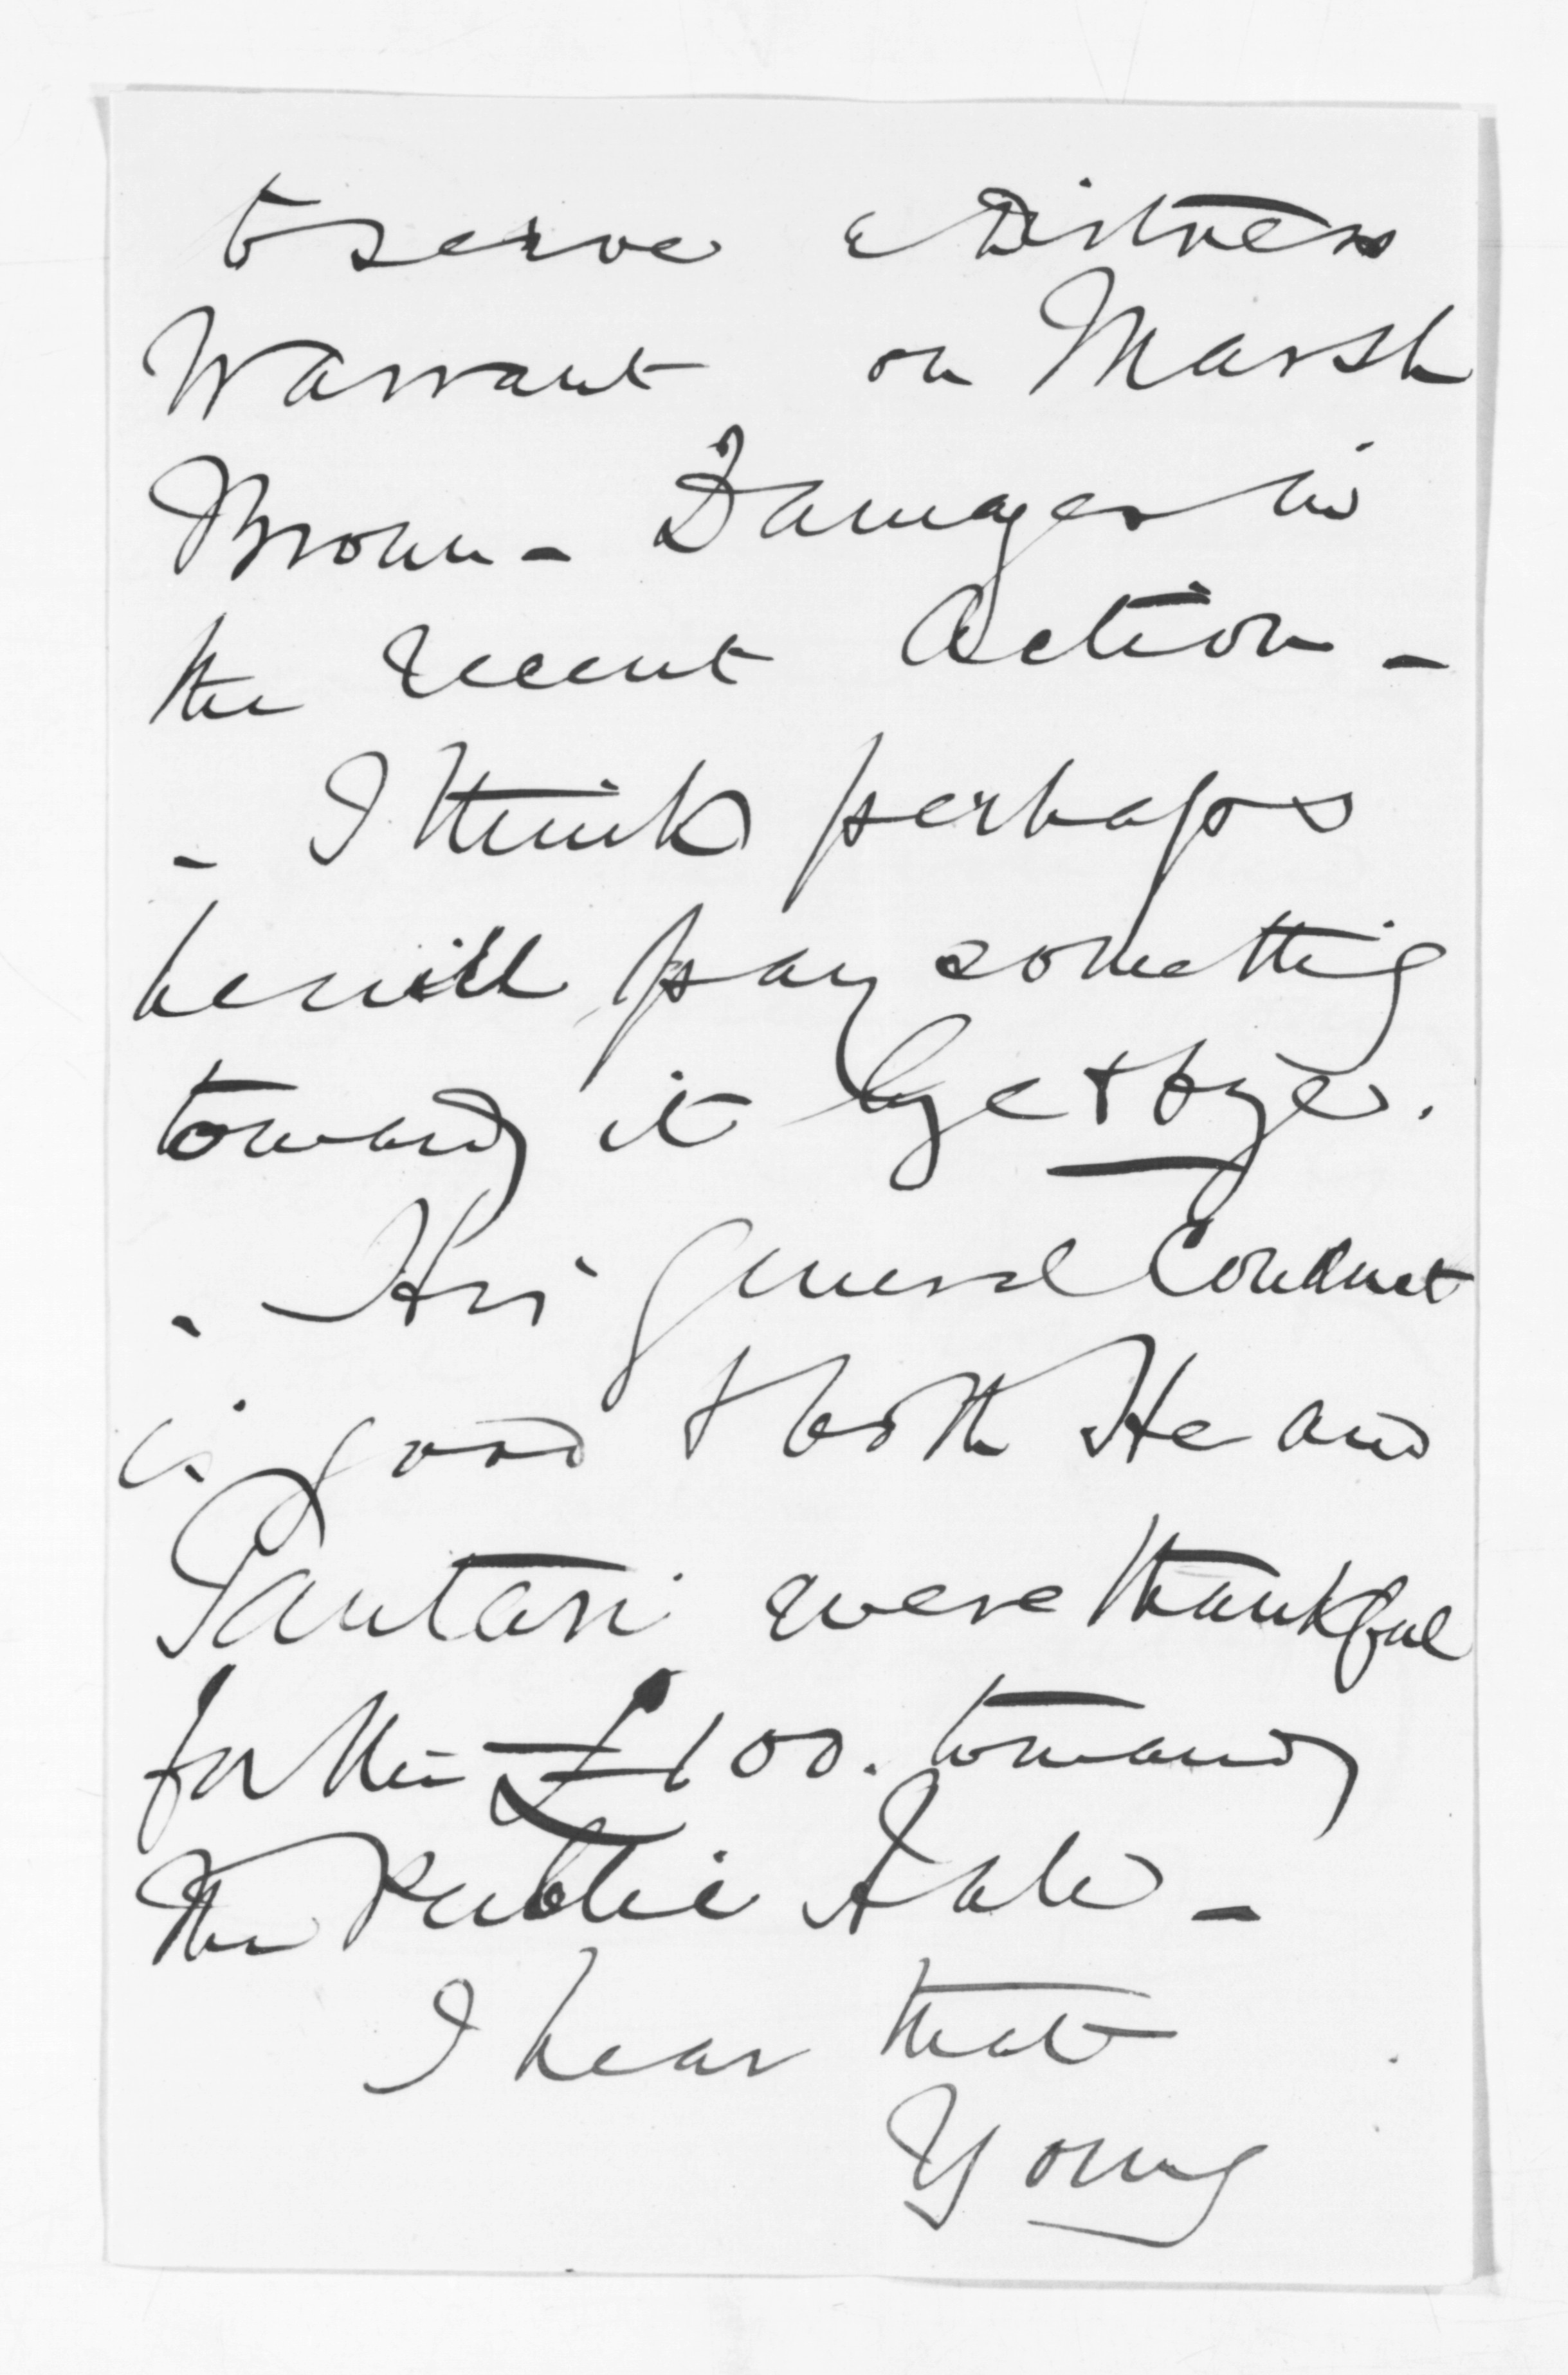 to serve a Distress
Warrant on Marsh
Brown - Damages in
the recent Action -
- I think perhaps
he will pay something
towards it bye & bye.
. His general Conduct
is good & both He and
Tautari were thankful
for the £100. towards
the Public Hall -
I hear that
Young